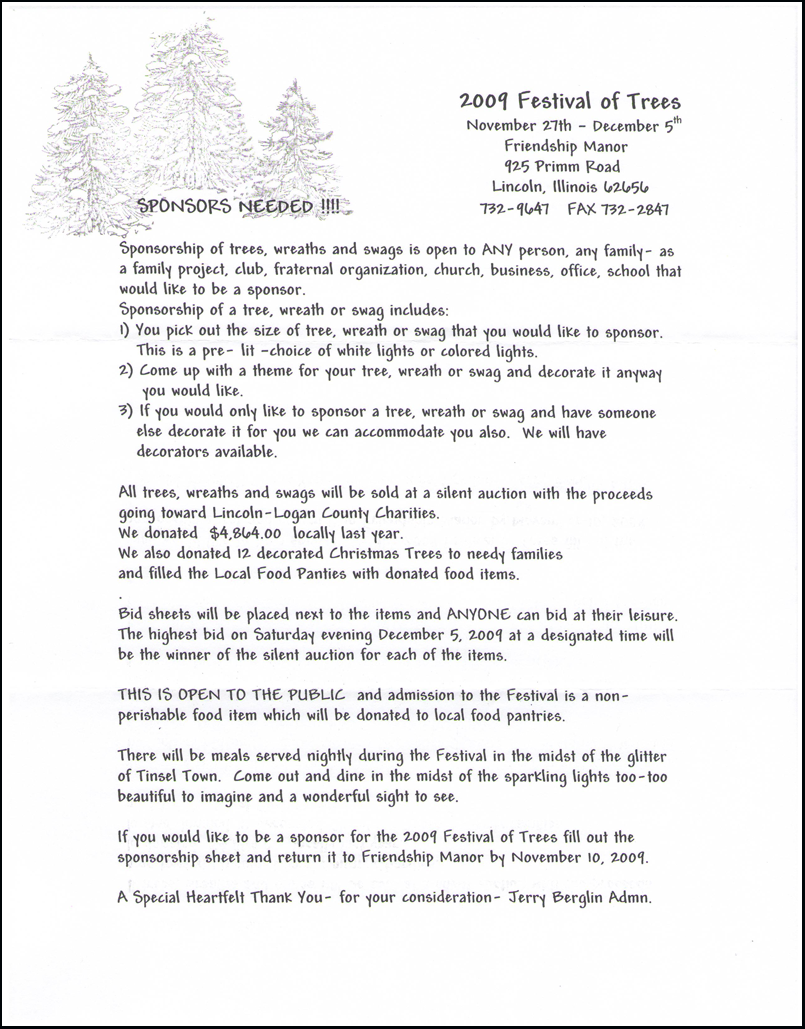 2009 Festival of Trees
November 27th - December 5th
Friendship Manor
925 Primm Road
Lincoln, Illinois 62656
732-9647 FAX 732-2847
SPONSORS NEEDED !!!!
Sponsorship of trees, wreaths and swags is open to ANY person, any family- as
a family project, club, fraternal organization, church, business, office, school that
would like to be a sponsor.
Sponsorship of a tree, wreath or swag includes:
1) You pick out the size of tree, wreath or swag that you would like to sponsor.
This is a pre- lit -choice of white lights or colored lights.
2) Come up with a theme for your tree, wreath or swag and decorate it anyway
you would like.
3) If you would only like to sponsor a tree, wreath or swag and have someone
else decorate it for you we can accommodate you also. We will have
decorators available.
All trees, wreaths and swags will be sold at a silent auction with the proceeds
going toward Lincoln-Logan County Charities.
We donated $4,864.00 locally last year.
We also donated 12 decorated Christmas Trees to needy families
and filled the Local Food Panties with donated food items.
.
Bid sheets will be placed next to the items and ANYONE can bid at their leisure.
The highest bid on Saturday evening December 5, 2009 at a designated time will
be the winner of the silent auction for each of the items.
THIS IS OPEN TO THE PUBLIC and admission to the Festival is a non-
perishable food item which will be donated to local food pantries.
There will be meals served nightly during the Festival in the midst of the glitter
of Tinsel Town. Come out and dine in the midst of the sparkling lights too-too
beautiful to imagine and a wonderful sight to see.
If you would like to be a sponsor for the 2009 Festival of Trees fill out the
sponsorship sheet and return it to Friendship Manor by November 10, 2009.
A Special Heartfelt Thank You- for your consideration- Jerry Berglin Admn.